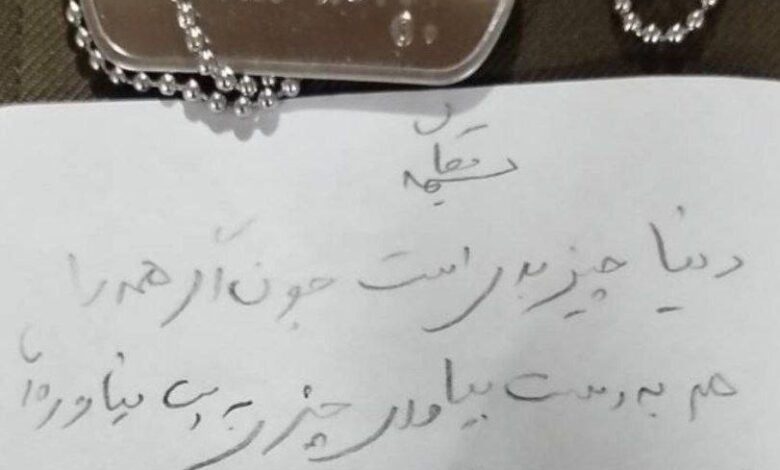 بسمه تعالی
دنیا چیز بدی است چون اگر همه را
هم به دست بیاوری چیزی به دست نیاورده‌ای